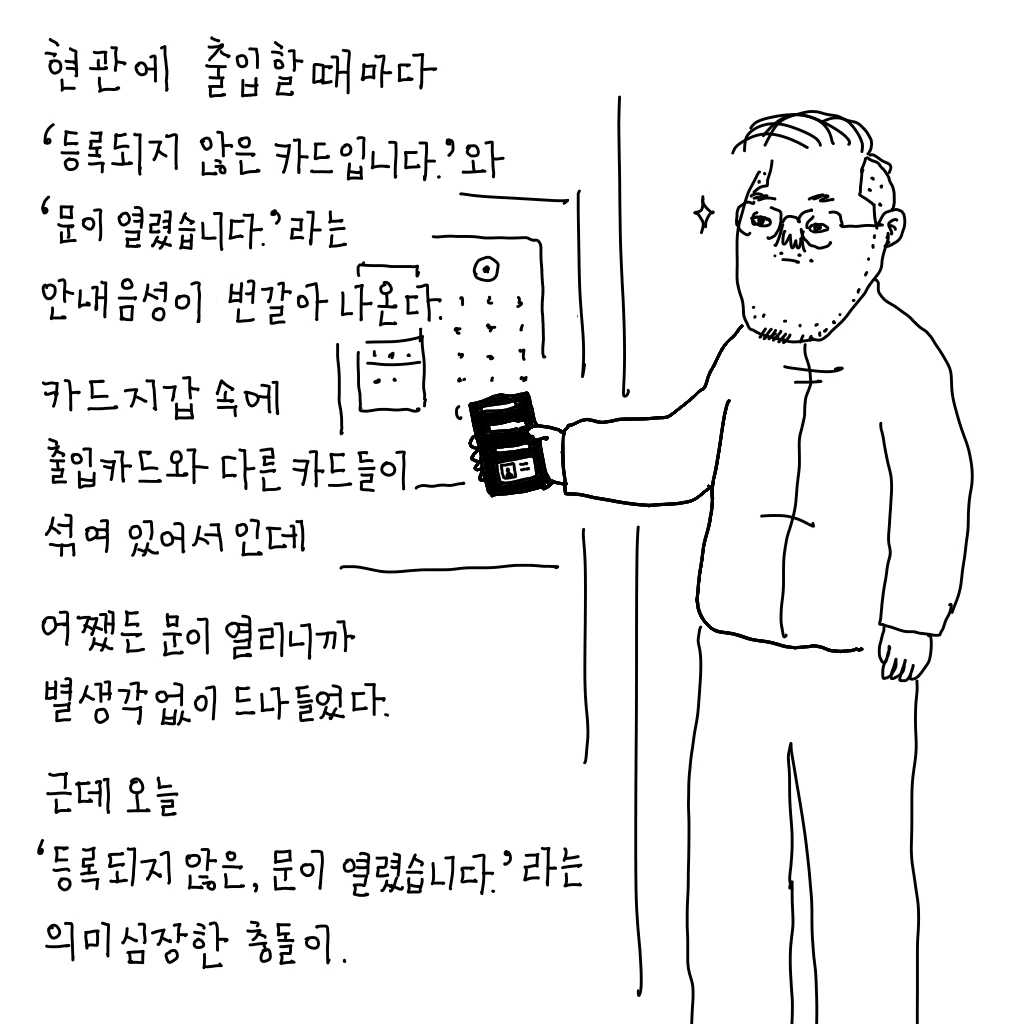 현관에 출입할때마다
‘등록되지 않은 카드입니다.’와
‘문이 열렸습니다.’라는
안내음성이 번갈아 나온다.
카드지갑 속에
출입카드와 다른 카드들이
섞여 있어서인데
어쨌든 문이 열리니까
별생각없이 드나들었다.
근데 오늘
‘등록되지 않은, 문이 열렸습니다.’라는
의미심장한 충돌이.